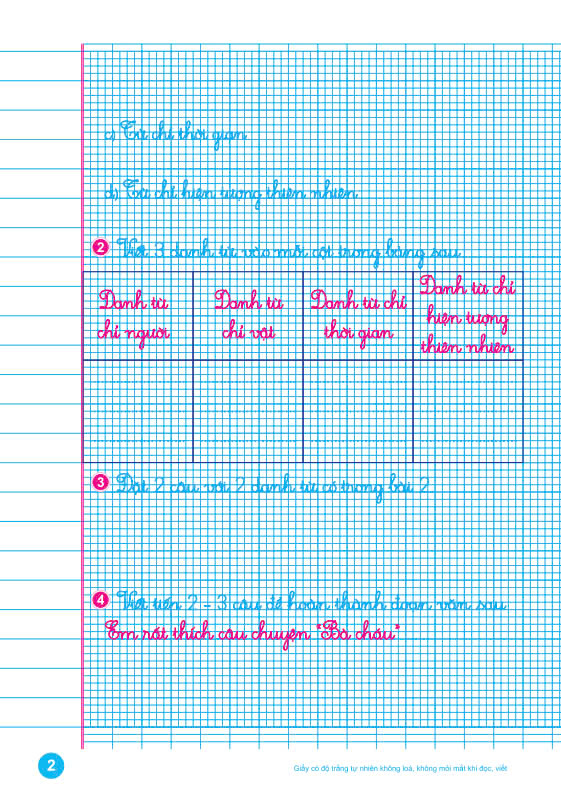 c) Từ chỉ thời gian
d) Từ chỉ hiện tượng thiên nhiên
2 Viết 3 danh từ vào mỗi cột trong bảng sau
Danh từ
chỉ người
Danh từ
chỉ vật
Danh từ chỉ
thời gian
Danh từ chỉ
hiện tượng
thiên nhiên
3 Đặt 2 câu với 2 danh từ có trong bài 2
4 Viết tiếp 2 - 3 câu để hoàn thành đoạn văn sau
Em rất thích câu chuyện "Bà cháu"
2
Giấy có độ trắng tự nhiên không loá, không mỏi mắt khi đọc, viết